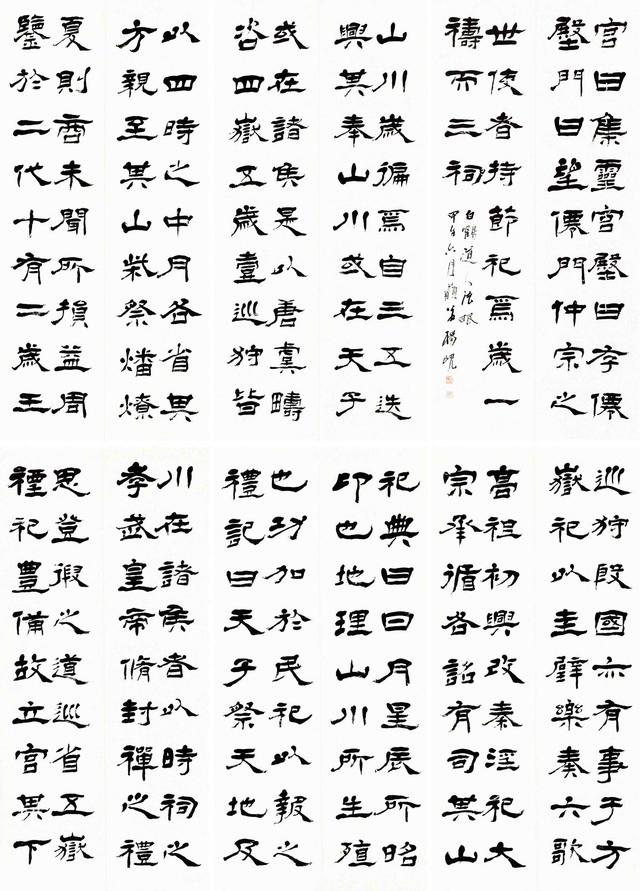 祀典曰日月星辰所昭
卬也地理山川所生殖
也功加於民祀以報之
禮記曰天子祭天地及
山川歲徧焉自三五迭
興其奉山川或在天子
或在諸侯是以唐虞疇
咨四嶽五歲壹巡狩皆
以四時之中月各省其
方親至其山柴祭燔燎
夏則商未聞所損益周
鑒於二代十有二歲王
巡狩殷國亦有事于方
嶽祀以圭璧樂奏六歌
高祖初興改秦淫祀大
宗承循各詔有司其山
川在諸侯者以時祠之
孝武皇帝脩封禪之禮
思登徦之道巡省五嶽
禋祀豊備故立宮其下
宮曰集靈宮壂曰存僊
壂門曰望僊門仲宗之
世使者持節祀焉歲一
禱而三祠
白鶴道人法眼
甲午六月藐翁楊峴